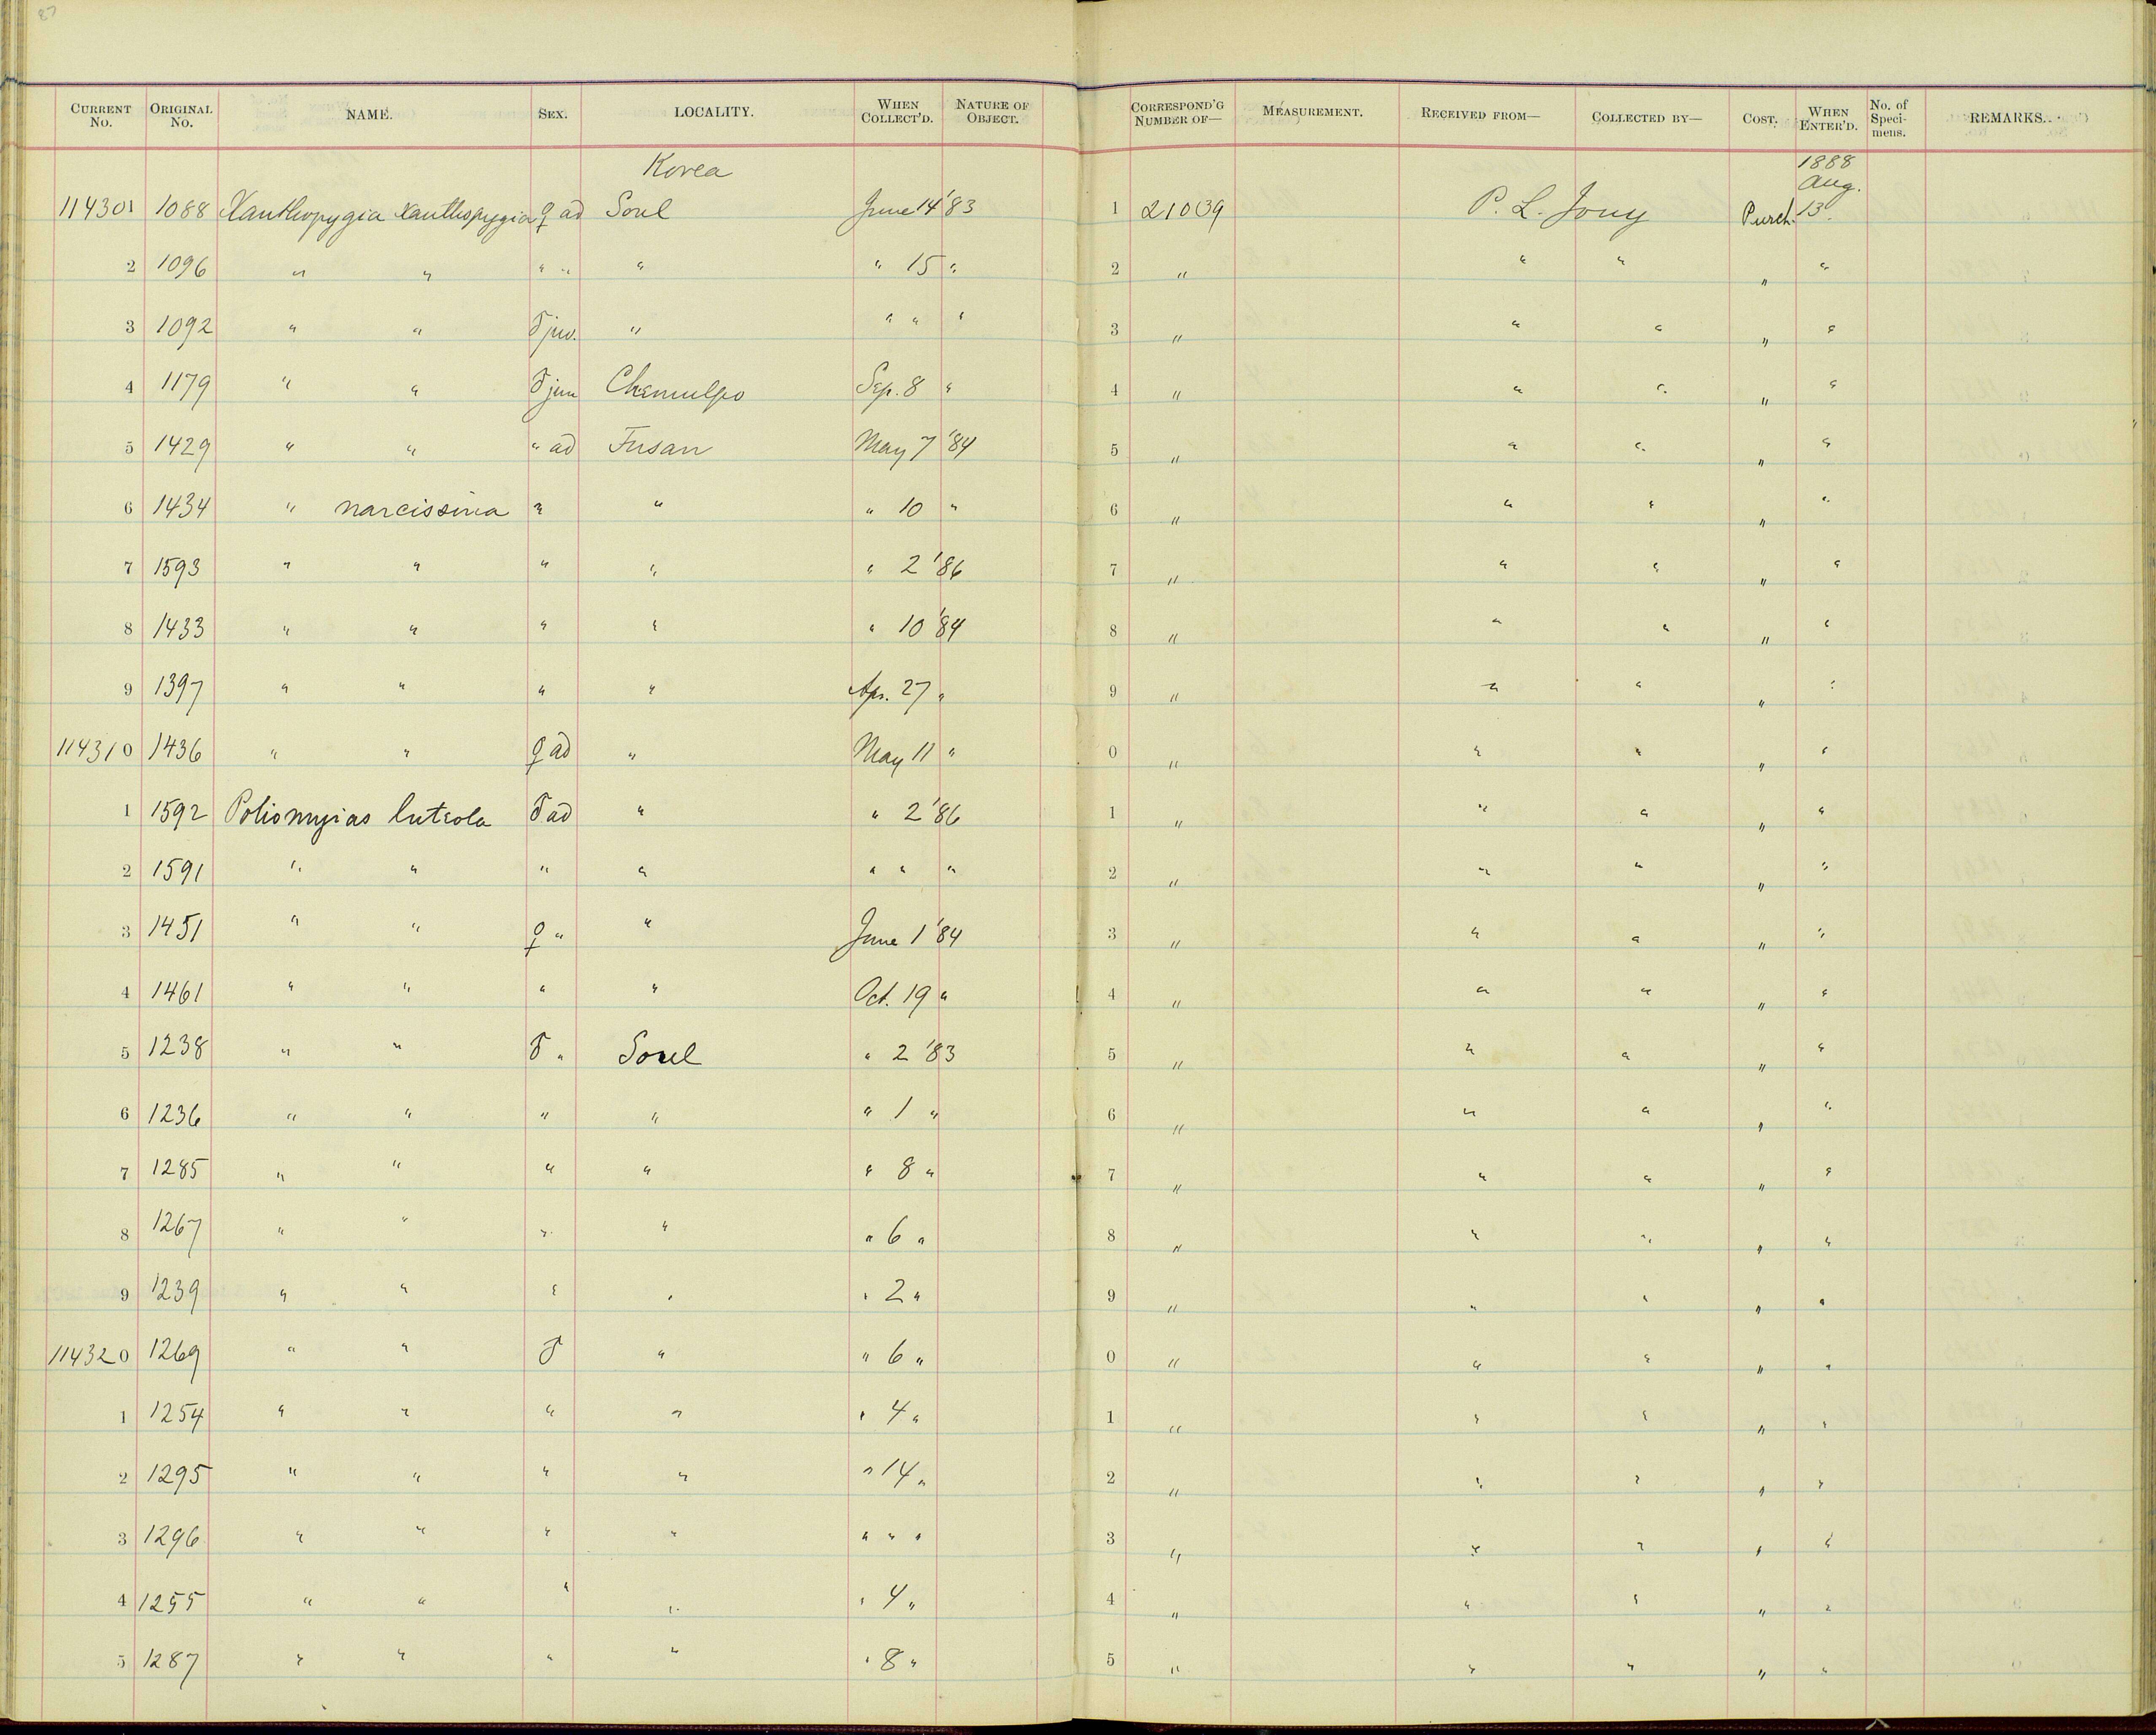 87
CURRENT No. ORIGINAL No. NAME. SEX. LOCALITY. WHEN COLLECT'D. NATURE OF OBJECT. CORRESPOND'G NUMBER OF— MEASUREMENT. RECEIVED FROM— COLLECTED BY— COST. WHEN ENTER'D. No. of Speci-mens. REMARKS.
Korea 1888
Aug.
114301 1088 Xanthopygia xanthopygia ♀ ad Soul June 14 '83 1 21039 P. L. Jouy Purch. 13.
2 1096 " " " " " " 15 " 2 " " " " "
3 1092 " " ♂ juv. " " " " 3 " " " " "
4 1179 " " ♂ juv Chemulpo Sep. 8 " 4 " " " " "
5 1429 " " " ad Fusan May 7 '84 5 " " " " "
6 1434 " narcissina " " " 10 " 6 " " " " "
7 1593 " " " " " 2 '86 7 " " " " "
8 1433 " " " " " 10 '84 8 " " " " "
9 1397 " " " " Apr. 27 " 9 " " " " "
114310 1436 " " ♀ ad " May 11 " 0 " " " " "
1 1592 Poliomyias luteola ♂ ad " " 2 '86 1 " " " " "
2 1591 " " " " " " " 2 " " " " "
3 1451 " " ♀ " " June 1 '84 3 " " " " "
4 1461 " " " " Oct. 19 " 4 " " " " "
5 1238 " " ♂ " Soul " 2 '83 5 " " " " "
6 1236 " " " " " 1 " 6 " " " " "
7 1285 " " " " " 8 " 7 " " " " "
8 1267 " " " " " 6 " 8 " " " " "
9 1239 " " " " " 2 " 9 " " " " "
114320 1269 " " ♂ " " 6 " 0 " " " " "
1 1254 " " " " " 4 " 1 " " " " "
2 1295 " " " " " 14 " 2 " " " " "
3 1296 " " " " " " " 3 " " " " "
4 1255 " " " " " 4 " 4 " " " " "
5 1287 " " " " " 8 " 5 " " " " "